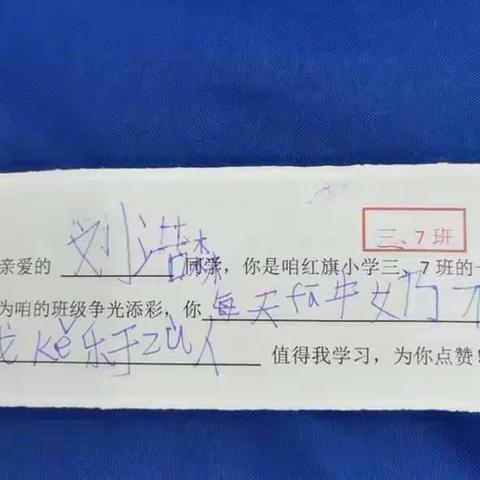 三、7班
亲爱的 刘浩森 同学，你是咱红旗小学三、7班的一
为咱的班级争光添彩，你 每天fā牛奶
kě乐于zù人 值得我学习，为你点赞！